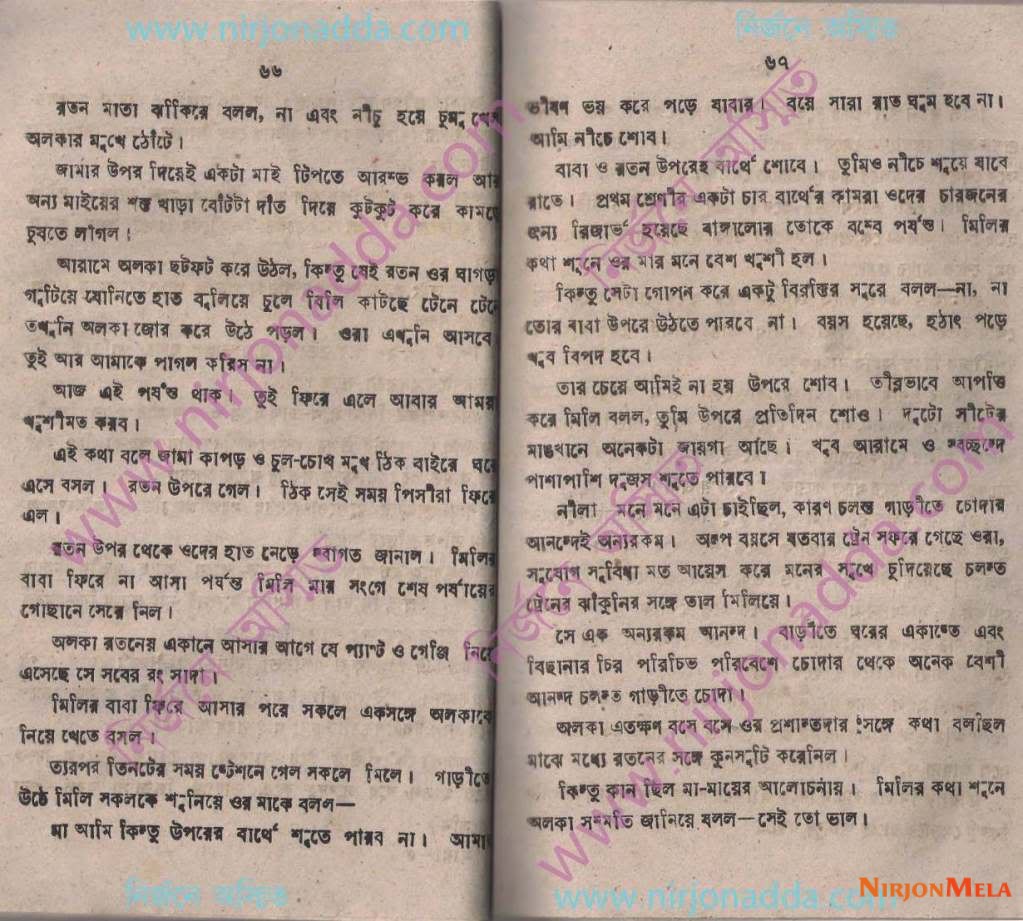 www.nirjonadda.com
নির্জনে অস্মিত
৬৬
রতন মাতা ঝাঁকিরে বলল, না এবং নীচু হয়ে চুমু খেল
অলকার মুখে ঠোঁটে।
জামার উপর দিয়েই একটা মাই টিপতে আরম্ভ করল আর
অন্য মাইয়ের শক্ত খাড়া বোঁটটা দাঁত দিয়ে কুটকুট করে কামড়ে
চুষতে লাগল।
আরামে অলকা ছটফট করে উঠল, কিন্তু যেই রতন ওর ঘাগড়া
গুটিয়ে যোনিতে হাত বুলিয়ে চুলে বিলি কাটছে টেনে টেনে
তখুনি অলকা জোর করে উঠে পড়ল। ওরা এখুনি আসবে
তুই আর আমাকে পাগল করিস না।
আজ এই পর্যন্ত থাক। তুই ফিরে এলে আবার আমরা
খুশীমত করব।
এই কথা বলে জামা কাপড় ও চুল-চোখ মুখ ঠিক বাইরে ঘরে
এসে বসল। রতন উপরে গেল। ঠিক সেই সময় পিসীরা ফিরে
এল।
রতন উপর থেকে ওদের হাত নেড়ে স্বাগত জানাল। মিলির
বাবা ফিরে না আসা পর্যন্ত মিলি মার সংগে শেষ পর্যায়ের
গোছানে সেরে নিল।
অলকা রতনেয় একানে আসার আগে যে প্যান্ট ও গেঞ্জি নিয়ে
এসেছে সে সবের রং সাদা।
মিলির বাবা ফিরে আসার পরে সকলে একসঙ্গে অলকাকে
নিয়ে খেতে বসল।
ত্যরপর তিনটের সময় ষ্টেশনে গেল সকলে মিলে। গাড়ীতে
উঠে মিলি সকলকে শুনিয়ে ওর মাকে বলল—
মা আমি কিন্তু উপরের বার্থে শুতে পারব না। আমার
৬৭
ভীষণ ভয় করে পড়ে যাবার। বয়ে সারা রাত ঘুম হবে না।
আমি নীচে শোব।
বাবা ও রতন উপরেহ বার্থে শোবে। তুমিও নীচে শুয়ে যাবে
রাতে। প্রথম শ্রেণীর একটা চার বার্থের কামরা ওদের চারজনের
জন্য রিজার্ভ হয়েছে বাঙ্গালোর তোকে বম্বে পর্যন্ত। মিলির
কথা শুনে ওর মার মনে বেশ খুশী হল।
কিন্তু সেটা গোপন করে একটু বিরক্তির সুরে বলল—না, না
তোর বাবা উপরে উঠতে পারবে না। বয়স হয়েছে, হঠাৎ পড়ে
খুব বিপদ হবে।
তার চেয়ে আমিই না হয় উপরে শোব। তীব্রভাবে আপত্তি
করে মিলি বলল, তুমি উপরে প্রতিদিন শোও। দুটো সীটের
মাঙখানে অনেকটা জায়গা আছে। খুব আরামে ও স্বচ্ছন্দে
পাশাপাশি দুজস শুতে পারবে।
নীলা মনে মনে এটা চাইছিল, কারণ চলন্ত গাড়ীতে চোদার
আনন্দেই অন্যরকম। অল্প বয়সে যতবার ট্রেন সফরে গেছে ওরা,
সুযোগ সুবিধা মত আয়েস করে মনের সুখে চুদিয়েছে চলন্ত
ট্রেনের ঝাঁকুনির সঙ্গে তাল মিলিয়ে।
সে এক অন্যরকম আনন্দ। বাড়ীতে ঘরের একান্তে এবং
বিছানার চির পরিচিত পরিবেশে চোদার থেকে অনেক বেশী
আনন্দ চলন্ত গাড়ীতে চোদা।
অলকা এতক্ষণ বসে বসে ওর প্রশান্তদার সঙ্গে কথা বলছিল
মাঝে মধ্যে রতনের সঙ্গে কুনসুটি করেনিল।
কিন্তু কান ছিল মা-মায়ের আলোচনায়। মিলির কথা শুনে
অলকা সম্মতি জানিয়ে বলল—সেই তো ভাল।
নির্জনে অস্মিত
www.nirjonadda.com
NIRJONMELA